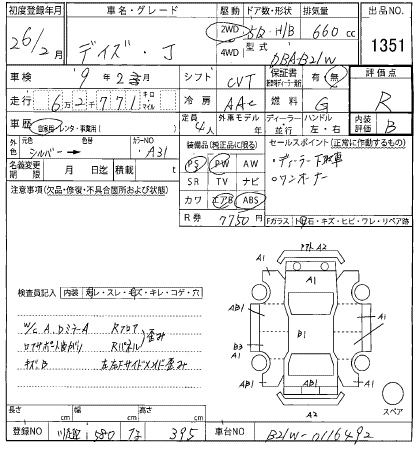 初度登録年月 車名・グレード 駆動 ドア数・形状 排気量 出品NO.
26/2月 デイズ・J 2WD 4WD 5D・H/B 660cc 1351
型式 DBA-B21W
車検 9年2月 シフト CVT 保証書 有 無 評価点 R
走行 6万2千771 キロ マイル 冷房 AAC 燃料 G
車歴 自家用・レンタ・事業用( ) 定員 4人 外車モデル 年 ディーラー 並行 ハンドル 左・右 内装評価 B
外色 元色 シルバー → カラーNO. ・A31
装備品(純正品に限る) セールスポイント(正常に作動するもの)
名義変更期限 月 日迄 積載 t
PS PW AW ・ディーラー下取車
SR TV ナビ ・ワンオーナー
カワ エアB ABS
R券 7750円
注意事項(欠品・修復・不具合箇所および状態)
Fガラス 飛石・キズ・ヒビ・ワレ・リペア跡
検査員記入 内装 汚レ・スレ・切キズ・キレ・コゲ・穴
W/C A DミラーA Rフロア
コアサポート曲がり Rパネル 歪み
キズB 左右Fサイドメンバ歪み
フロントA2
A1
A1
A1
AB1
AB1
B1
B3
A1
A1
A1
A1
A2
スペア
長さ cm 幅 cm 高さ cm
登録NO 580 395 車台NO B21W-0116492